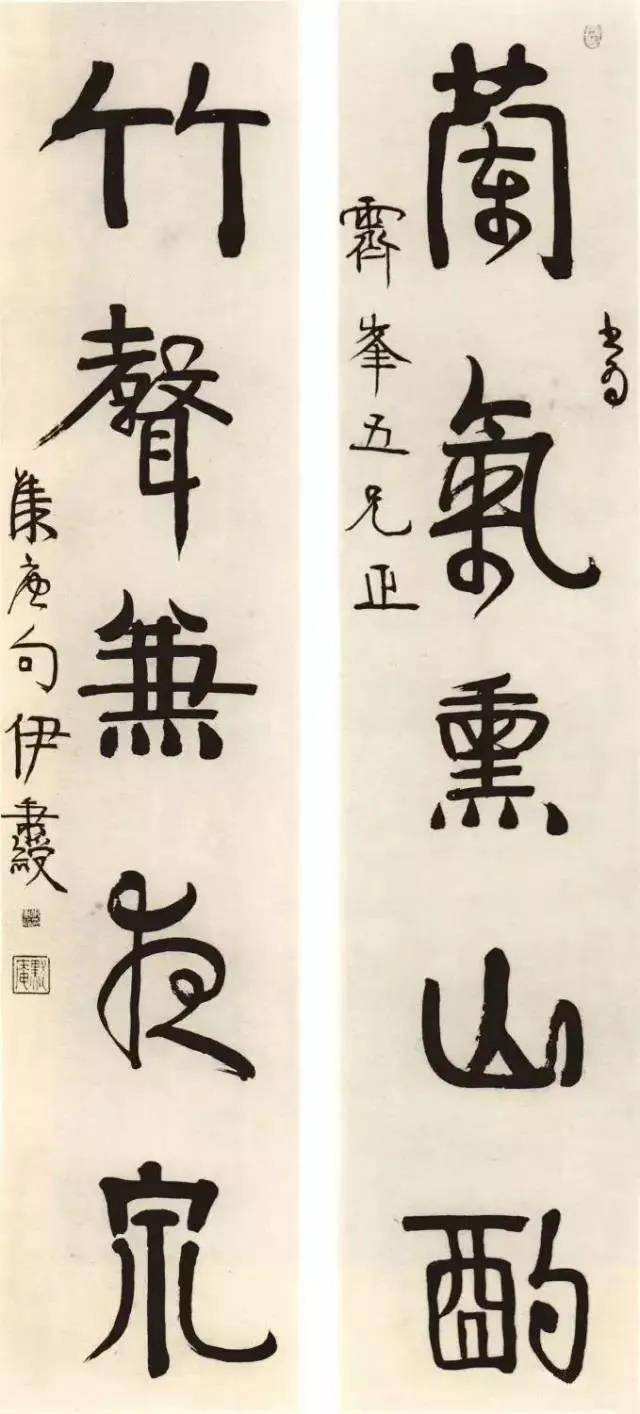 蘭氣熏山酌
書為
霽峯五兄正
竹聲兼夜泉
集唐句伊秉綬